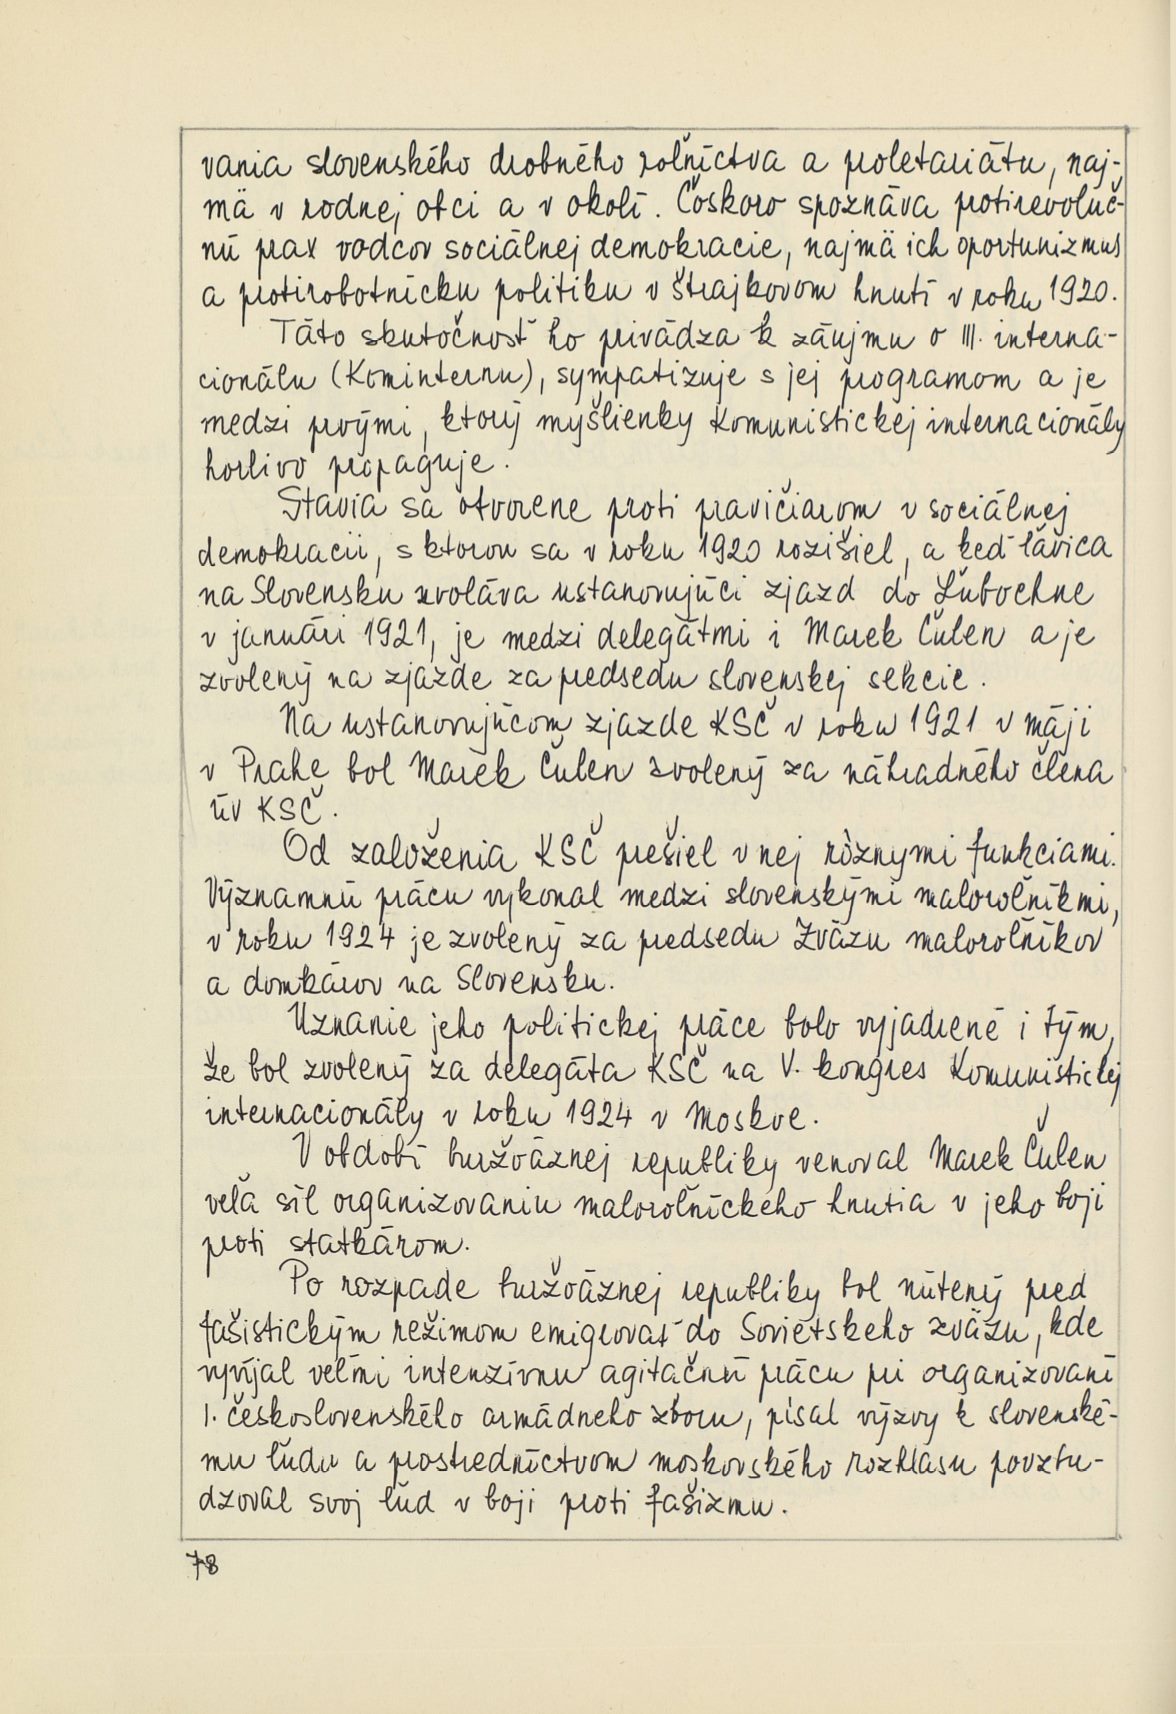 vania slovenského drobného roľníctva a proletariátu, naj-
mä v rodnej obci a v okolí. Čoskoro spoznáva protirevoluč-
nú prax vodcov sociálnej demokracie, najmä ich oportunizmus
a protirobotnícku politiku v štrajkovom hnutí v roku 1920.
Táto skutočnosť ho privádza k záujmu o III. interna-
cionálu (Kominternu), sympatizuje s jej programom a je
medzi prvými, ktorý myšlienky Komunistickej internacionály
horlivo propaguje.
Stavia sa otvorene proti pravičiarom v sociálnej
demokracii, s ktorou sa v roku 1920 rozišiel, a keď ľavica
na Slovensku zvoláva ustanovujúci zjazd do Ľubochne
v januári 1921, je medzi delegátmi i Marek Čulen a je
zvolený na zjazde za predsedu slovenskej sekcie.
Na ustanovujúcom zjazde KSČ v roku 1921 v máji
v Prahe bol Marek Čulen zvolený za náhradného člena
ÚV KSČ.
Od založenia KSČ prešiel v nej rôznymi funkciami.
Významnú prácu vykonal medzi slovenskými maloroľníkmi,
v roku 1924 je zvolený za predsedu Zväzu maloroľníkov
a domkárov na Slovensku.
Uznanie jeho politickej práce bolo vyjadrené i tým,
že bol zvolený za delegáta KSČ na V. kongres Komunistickej
internacionály v roku 1924 v Moskve.
V období buržoáznej republiky venoval Marek Čulen
veľa síl organizovaniu maloroľníckeho hnutia v jeho boji
proti statkárom.
Po rozpade buržoáznej republiky bol nútený pred
fašistickým režimom emigrovať do Sovietskeho zväzu, kde
vyvíjal veľmi intenzívnu agitačnú prácu pri organizovaní
I. československého armádneho zboru, písal výzvy k slovenské-
mu ľudu a prostredníctvom moskovského rozhlasu povzbu-
dzoval svoj ľud v boji proti fašizmu.
78